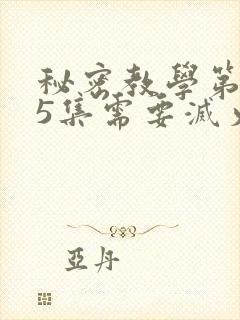 秘密教學第
5集需要滅火
亞丹